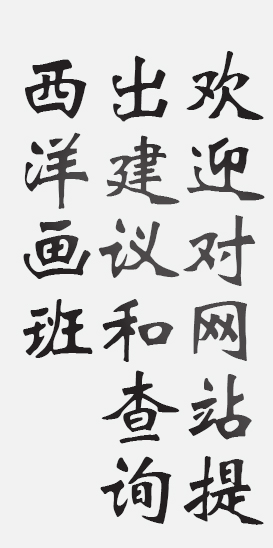 欢迎对网站提
出建议和查询
西洋画班